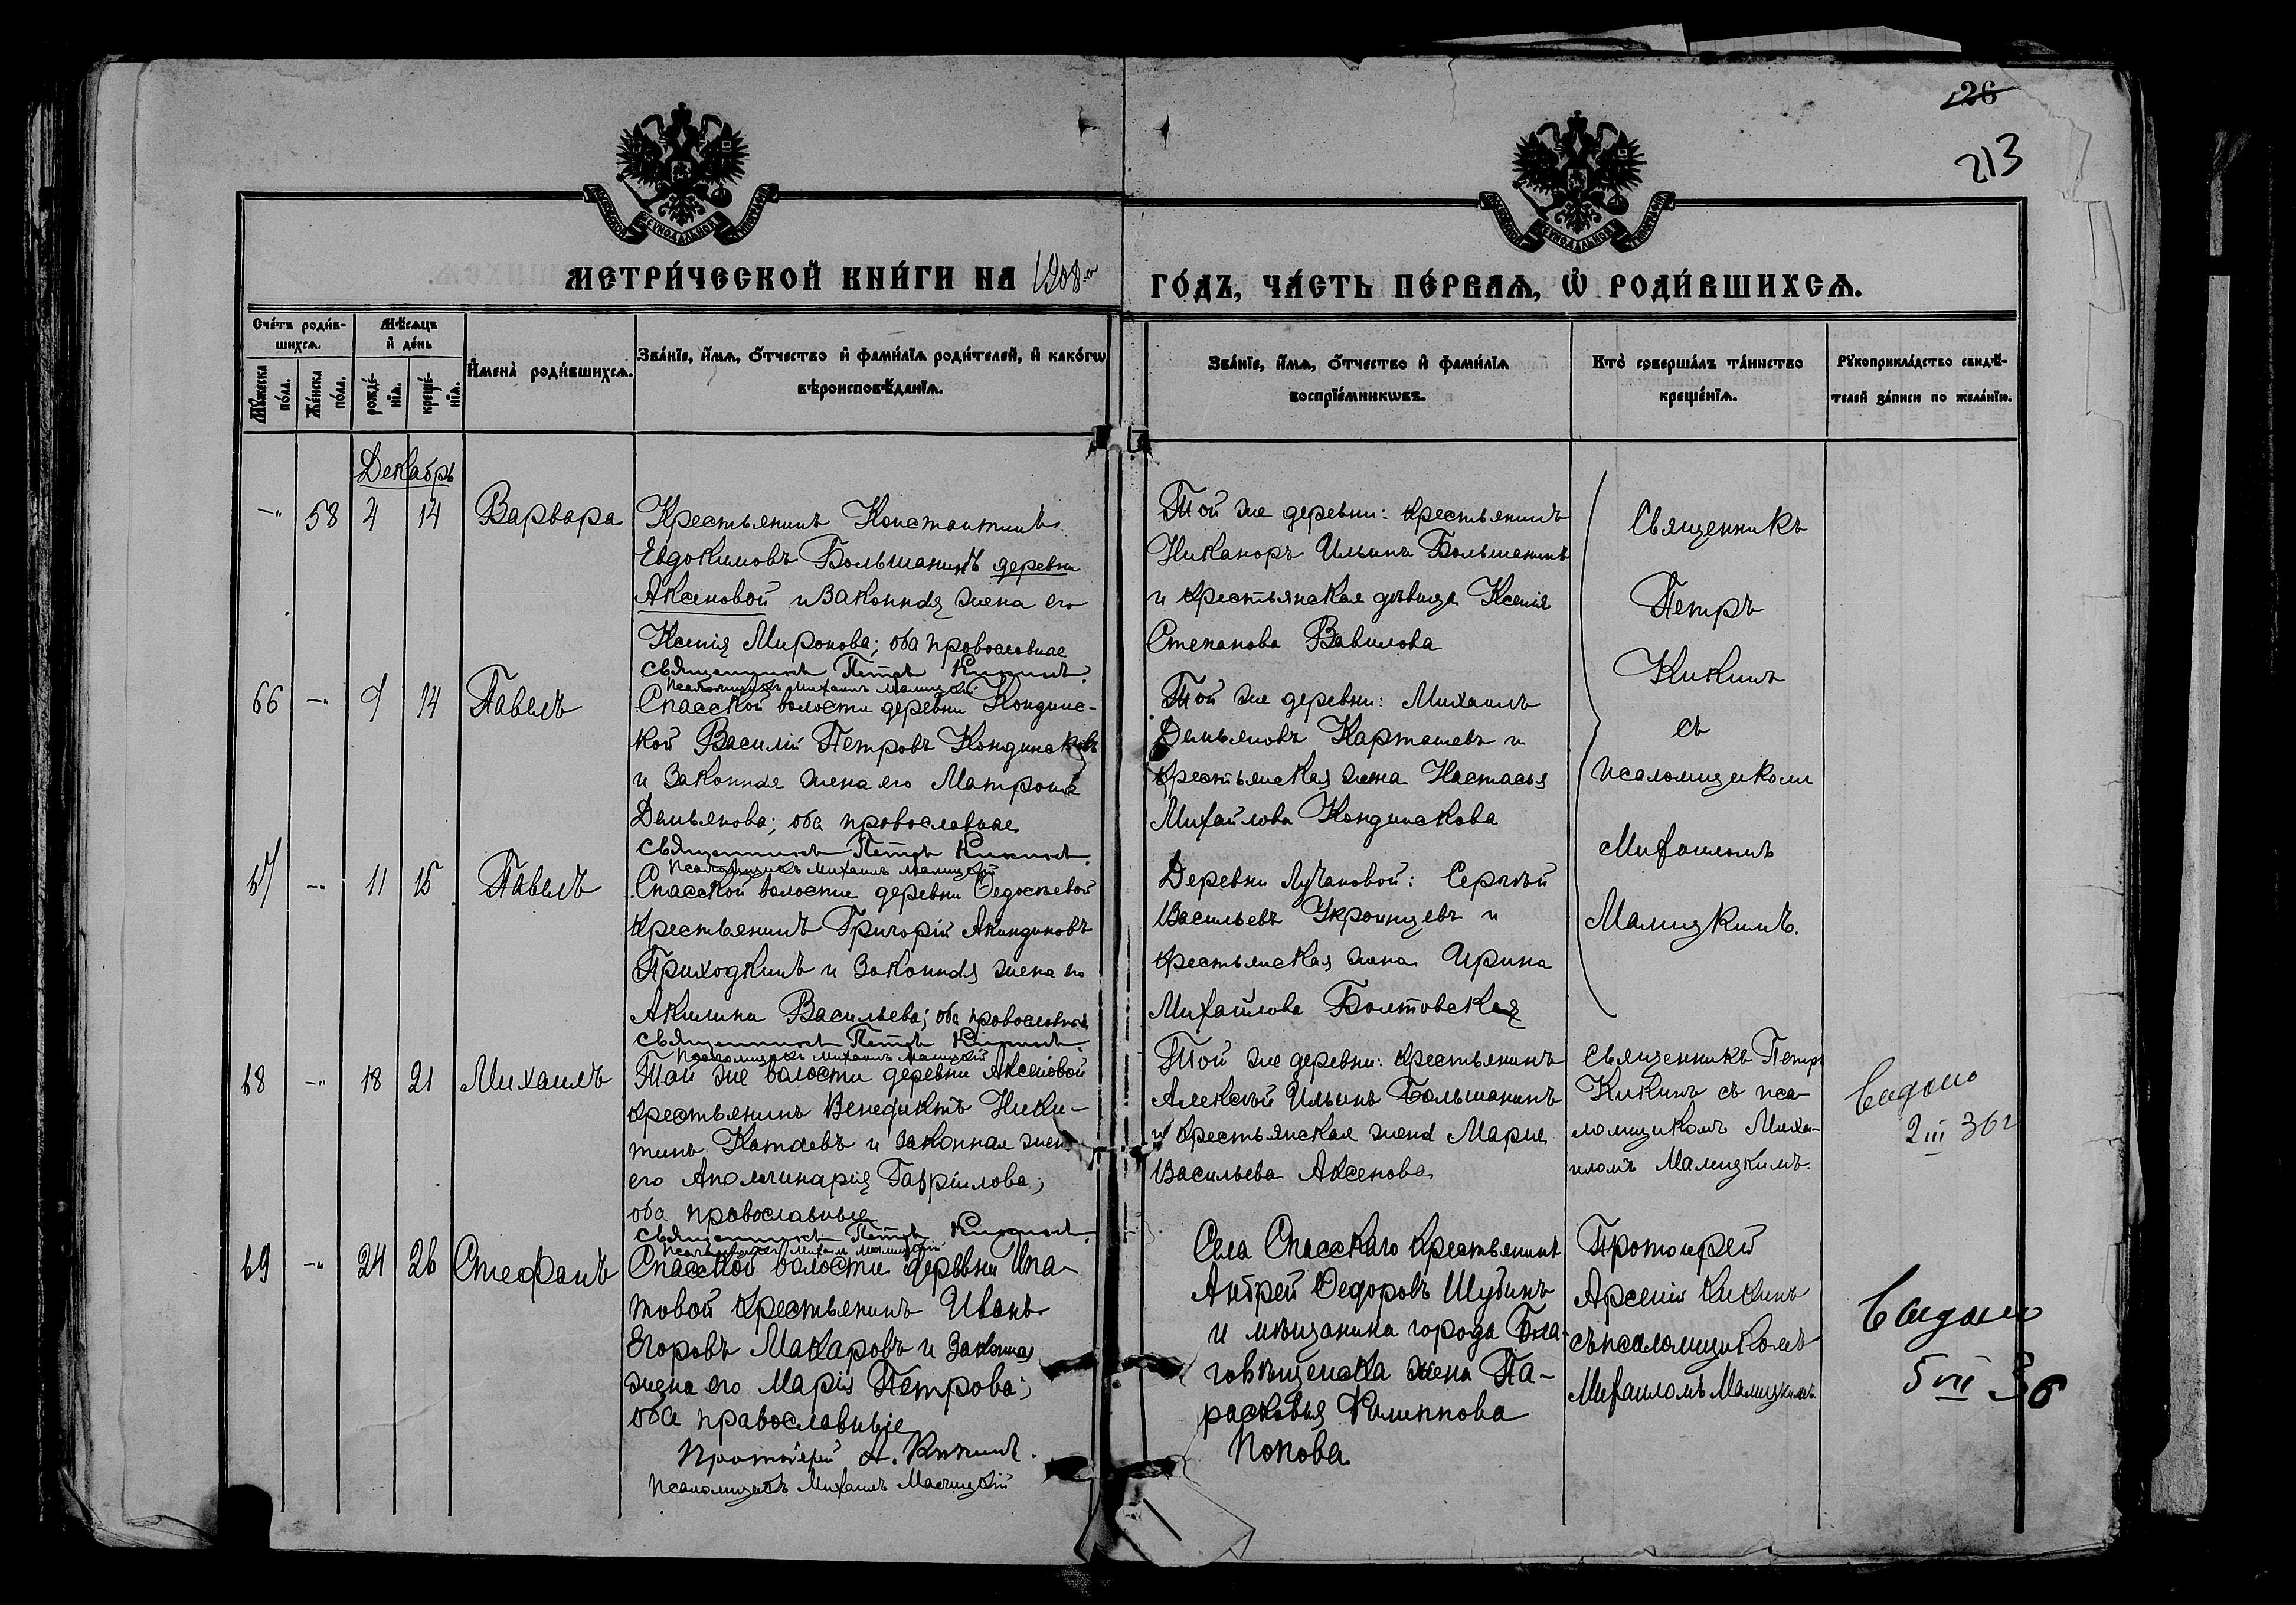 26
213
МОСКОВСКОЙ СѴНОДАЛЬНОЙ ТИПОГРАФІИ
МОСКОВСКОЙ СѴНОДАЛЬНОЙ ТИПОГРАФІИ
МЕТРИ́ЧЕСКОЙ КНИ́ГИ НА 1908-й ГО́ДЪ, ЧА́СТЬ ПЕ́РВАѦ, Ѡ҆ РОДИ́ВШИХСѦ.
Сче́тъ роди́в-
шихсѧ.
Мꙋ́жеска по́ла.
Же́нска по́ла.
Мѣ́сѧцъ
и҆ де́нь
рожде́-
нїѧ.
креще́-
нїѧ.
И҆мена̀ роди́вшихсѧ.
Зва́нїе, и҆́мѧ, ѻ҆́тчество и҆ фами́лїѧ роди́телей, и҆ како́гѡ
вѣроисповѣ́данїѧ.
Зва́нїе, и҆́мѧ, ѻ҆́тчество и҆ фами́лїѧ
воспрїе́мникѡвъ.
Кто̀ соверша́лъ та́инство
креще́нїѧ.
Рꙋкоприкла́дство свидѣ́-
телей за́писи по жела́нїю.
Декабрь
-"- 58 4 14 Варвара
Крестьянинъ Константинъ
Евдокимовъ Большанинъ деревни
Аксеновой и законная жена его
Ксенія Миронова; оба православные
Священникъ Петръ Кикинъ.
Псаломщикъ Михаилъ Малицкій
Той же деревни: крестьянинъ
Никаноръ Ильинъ Большенинъ
и крестьянская дѣвица Ксенія
Степанова Вавилова
Священникъ
Петръ
Кикинъ
съ
псаломщикомъ
Михаиломъ
Малицкимъ.
66 -"- 9 14 Павелъ
Спасской волости деревни Кондинс-
кой Василій Петровъ Кондинсковъ
и законная жена его Матрона
Демьянова; оба православные
Священникъ Петръ Кикинъ.
Псаломщикъ Михаилъ Малицкій
Той же деревни: Михаилъ
Демьяновъ Карташевъ и
крестьянская жена Настасья
Михайлова Кондинскова
67 -"- 11 15 Павелъ
Спасской волости деревни Федосѣевой
крестьянинъ Григорій Акиндиновъ
Приходкинъ и законная жена его
Акилина Васильева; оба православные
Священникъ Петръ Кикинъ.
Псаломщикъ Михаилъ Малицкій
Деревни Лучановой: Сергѣй
Васильевъ Украинцевъ и
крестьянская жена Ирина
Михайлова Болтовская
68 -"- 18 21 Михаилъ
Той же волости деревни Аксеновой
крестьянинъ Венедиктъ Ники-
тинъ Катаевъ и законная жена
его Аполинарія Гавріилова;
оба православные
Священникъ Петръ Кикинъ.
Псаломщикъ Михаилъ Малицкій
Той же деревни: крестьянинъ
Алексѣй Ильинъ Большанинъ
и крестьянская жена Марія
Васильева Аксенова
Священникъ Петръ
Кикинъ съ пса-
ломщикомъ Миха-
иломъ Малицкимъ.
2 III 36 г
69 -"- 24 26 Стефанъ
Спасской волости деревни Ипа-
товой крестьянинъ Иванъ
Егоровъ Макаровъ и законная
жена его Марія Петрова;
оба православные
Протоіерей А. Кикинъ.
Псаломщикъ Михаилъ Малицкій
Села Спасскаго крестьянинъ
Андрей Федоровъ Шубинъ
и мѣщанина города Бла-
говѣщенска жена Па-
расковья Филиппова
Попова
Протоіерей
Арсеній Кикинъ
съ псаломщикомъ
Михаиломъ Малицкимъ.
5 VII 36